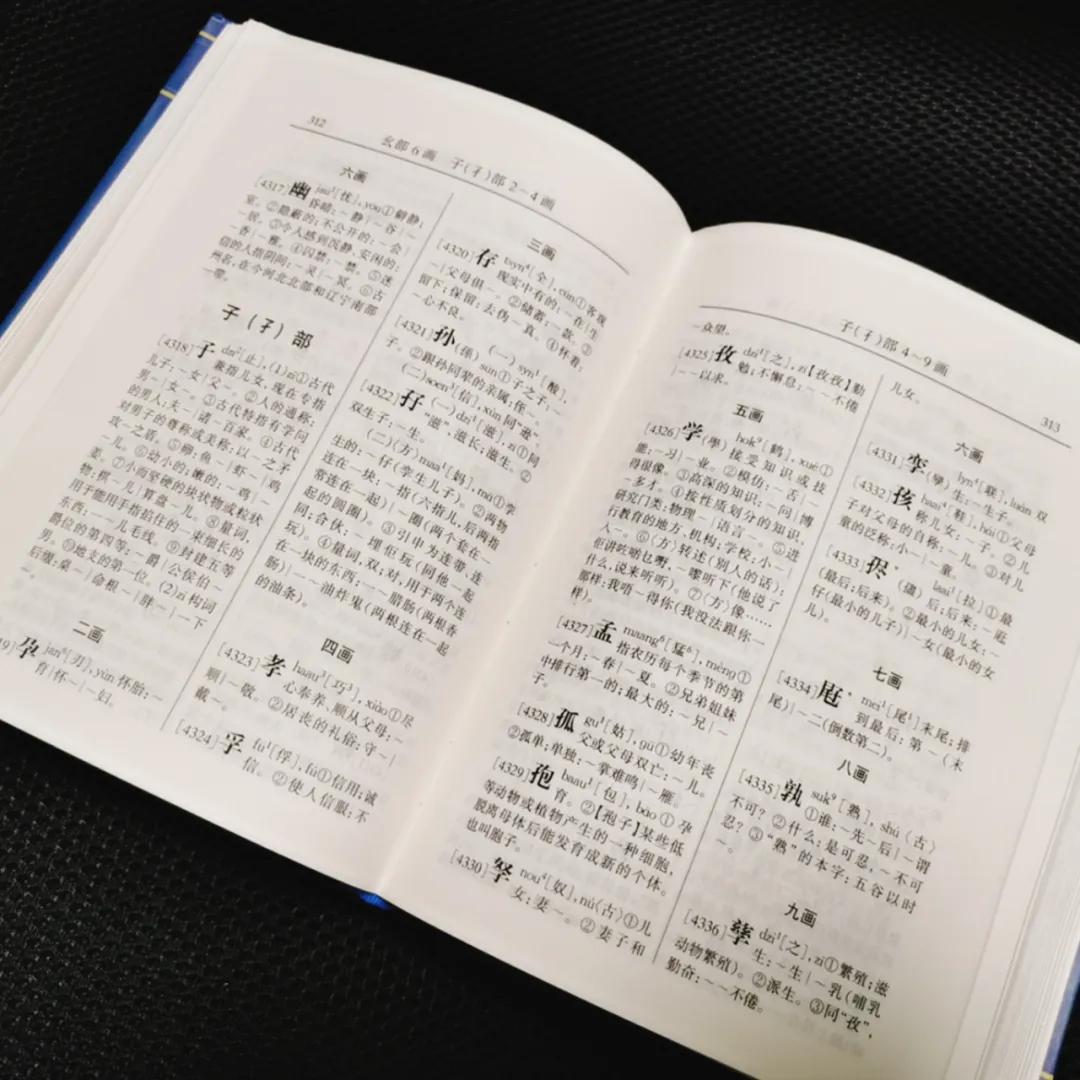 312
玄部6画 子(孑)部2~4画
六画
[4317]幽 jau¹[忧],yōu①僻静,
昏暗:~静|~谷|~
室。②隐蔽的;不公开的:~会
~居。③令人感到沉静、安闲的:
~香|~雅。④囚禁:~禁。⑤迷
信的人指阴间:~灵|~冥。⑥古
州名,在今河北北部和辽宁南部
一带。
子(孑)部
[4318]子 dzi²[止],(1)zǐ①古代
兼指儿女,现在专指
儿子:~女|父~。②人的通称:
男~|女~。③古代特指有学问
的男人:夫~|诸~百家。④古代
对男子的尊称或美称:以~之矛
攻~之盾。⑤卵:鱼~|虾~|鸡
~儿。⑥幼小的;嫩的:~鸡|~
姜。⑦小而坚硬的块状物或粒状
物:棋~儿|算盘~儿。⑧量词,
用于能用手指掐住的一束细长的
东西:一~儿毛线。⑨封建五等
爵位的第四等:~爵|公侯伯~
男。⑩地支的第一位。(2)zi构词
后缀:桌~|命根~|胖~|一下
~。
二画
孕 jan⁶[刃],yùn怀胎:~
育|怀~|~妇。
三画
[4320]存 tsyn⁴[全],cún①客观
现实中有的:~在|生
~|父母俱~。②储蓄:~款。③
留下;保留:去伪~真。④怀着:
~心不良。
[4321]孙(孫) (一)syn¹[酸],
sūn①子之子:~
子。②跟孙同辈的亲属:侄~。
(二)soen³[信],xùn同“逊”。
[4322]孖 (一)dzi¹[滋],zī①同
“滋”,滋长;滋生。②
双生子:~生。
(二)(方)maa¹[妈],mā①孪
生的:~仔(孪生儿子)。②两物
连在一块:~指(六指儿,后两指
常连在一起)|~圈(两个套在一
起的圆圈)。③引申为连带、连
同、合伙:~埋佢玩(同他一起
玩)。④量词,双;对,用于两个连
在一块的东西:一~腊肠(两根香
肠)|一~油炸鬼(两根连在一起
的油条)。
四画
[4323]孝 haau³[巧³],xiào①尽
心奉养、顺从父母:~
顺|~敬。②居丧的礼俗:守~|
戴~。
[4324]孚 fu¹[俘],fú①信用;诚
信。②使人信服:不
子(孑)部4~9画
313
~众望。
[4325]孜 dzi¹[之],zī【孜孜】勤
勉;不懈怠:~~不倦
|~~以求。
五画
[4326]学(學) hok⁹[鹤],xué①
接受知识或技
能:~习|~业。②模仿:~舌|~
得很像。③高深的知识:~问|博
~多才。④按性质划分的知识、
研究门类:物理~|语言~。⑤进
行教育的地方、机构;学校:小~|
入~。⑥(方)转述(别人的话):
佢讲咗啲乜嘢,~嚟听下(他说了
什么,说来听听)。⑦(方)像……
那样:我唔~得你(我没法跟你一
样)。
[4327]孟 maang⁶[猛⁶],mèng①
指农历每个季节的第
一个月:~春|~夏。②兄弟姐妹
中排行第一的;最大的:~兄|~
子。
[4328]孤 gu¹[姑],gū①幼年丧
父或父母双亡:~儿。
②孤单;单独:~掌难鸣|~雁。
[4329]孢 baau¹[包],bāo①孕
育。②【孢子】某些低
等动物或植物产生的一种细胞,
脱离母体后能发育成新的个体。
也叫胞子。
[4330]孥 nou⁴[奴],nú(古)①儿
女:妻~。②妻子和
儿女。
六画
[4331]孪 lyn⁴[联],luán双
(孿)生:~生子。
[4332]孩 haai⁴[鞋],hái①父母
称儿女:~子。②儿
子对父母的自称:~儿。③对儿
童的泛称:小~|~童。
[4333] (儘)laai¹[拉]①最
后;后来:~屘
(最后;后来)。②最小的儿女:~
仔(最小的儿子)|~女(最小的女
儿)。
七画
[4334]屘 mei¹[尾¹]末尾;排
到最后:第~(末
尾)|~二(倒数第二)。
八画
[4335]孰 suk⁹[熟],shú(古)
①谁:~先~后|~谓
不可?②什么:是可忍,~不可
忍?③“熟”的本字:五谷以时
~。
九画
[4336]孳 dzi¹[之],zī①繁殖;滋
生:~生|~乳(哺乳
动物繁殖)。②派生。③同“孜”,
勤奋:~~不倦。